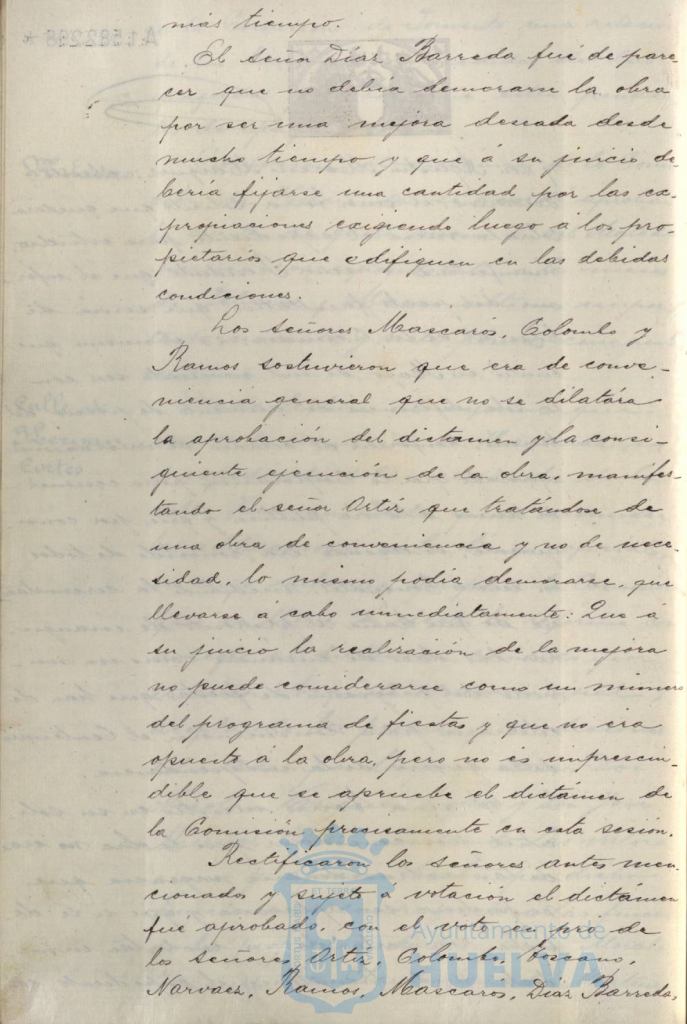 más tiempo.
El señor Díaz Barreda fué de pare-
cer que no debía demorarse la obra
por ser una mejora deseada desde
mucho tiempo y que á su juicio de-
bería fijarse una cantidad por las ex-
propiaciones exigiendo luego á los pro-
pietarios que edifiquen en las debidas
condiciones.
Los señores Mascarós, Colombo y
Ramos sostuvieron que era de conve-
niencia general que no se dilatára
la aprobación del dictamen y la consi-
guiente ejecución de la obra, manifes-
tando el señor Ortiz que tratándose de
una obra de conveniencia y no de nece-
sidad, lo mismo podía demorarse, que
llevarse á cabo inmediatamente: Que á
su juicio la realización de la mejora
no puede considerarse como un número
del programa de fiestas y que no era
opuesto á la obra, pero no es imprescin-
dible que se apruebe el dictámen de
la Comisión precisamente en esta sesión.
Rectificaron los señores antes men-
cionados y sujeto á votación el dictámen
fué aprobado, con el voto en pro de
los señores Ortiz, Colombo, Toscano,
Narvaez, Ramos, Mascaros, Díaz Barreda,
Ayuntamiento de
HUELVA